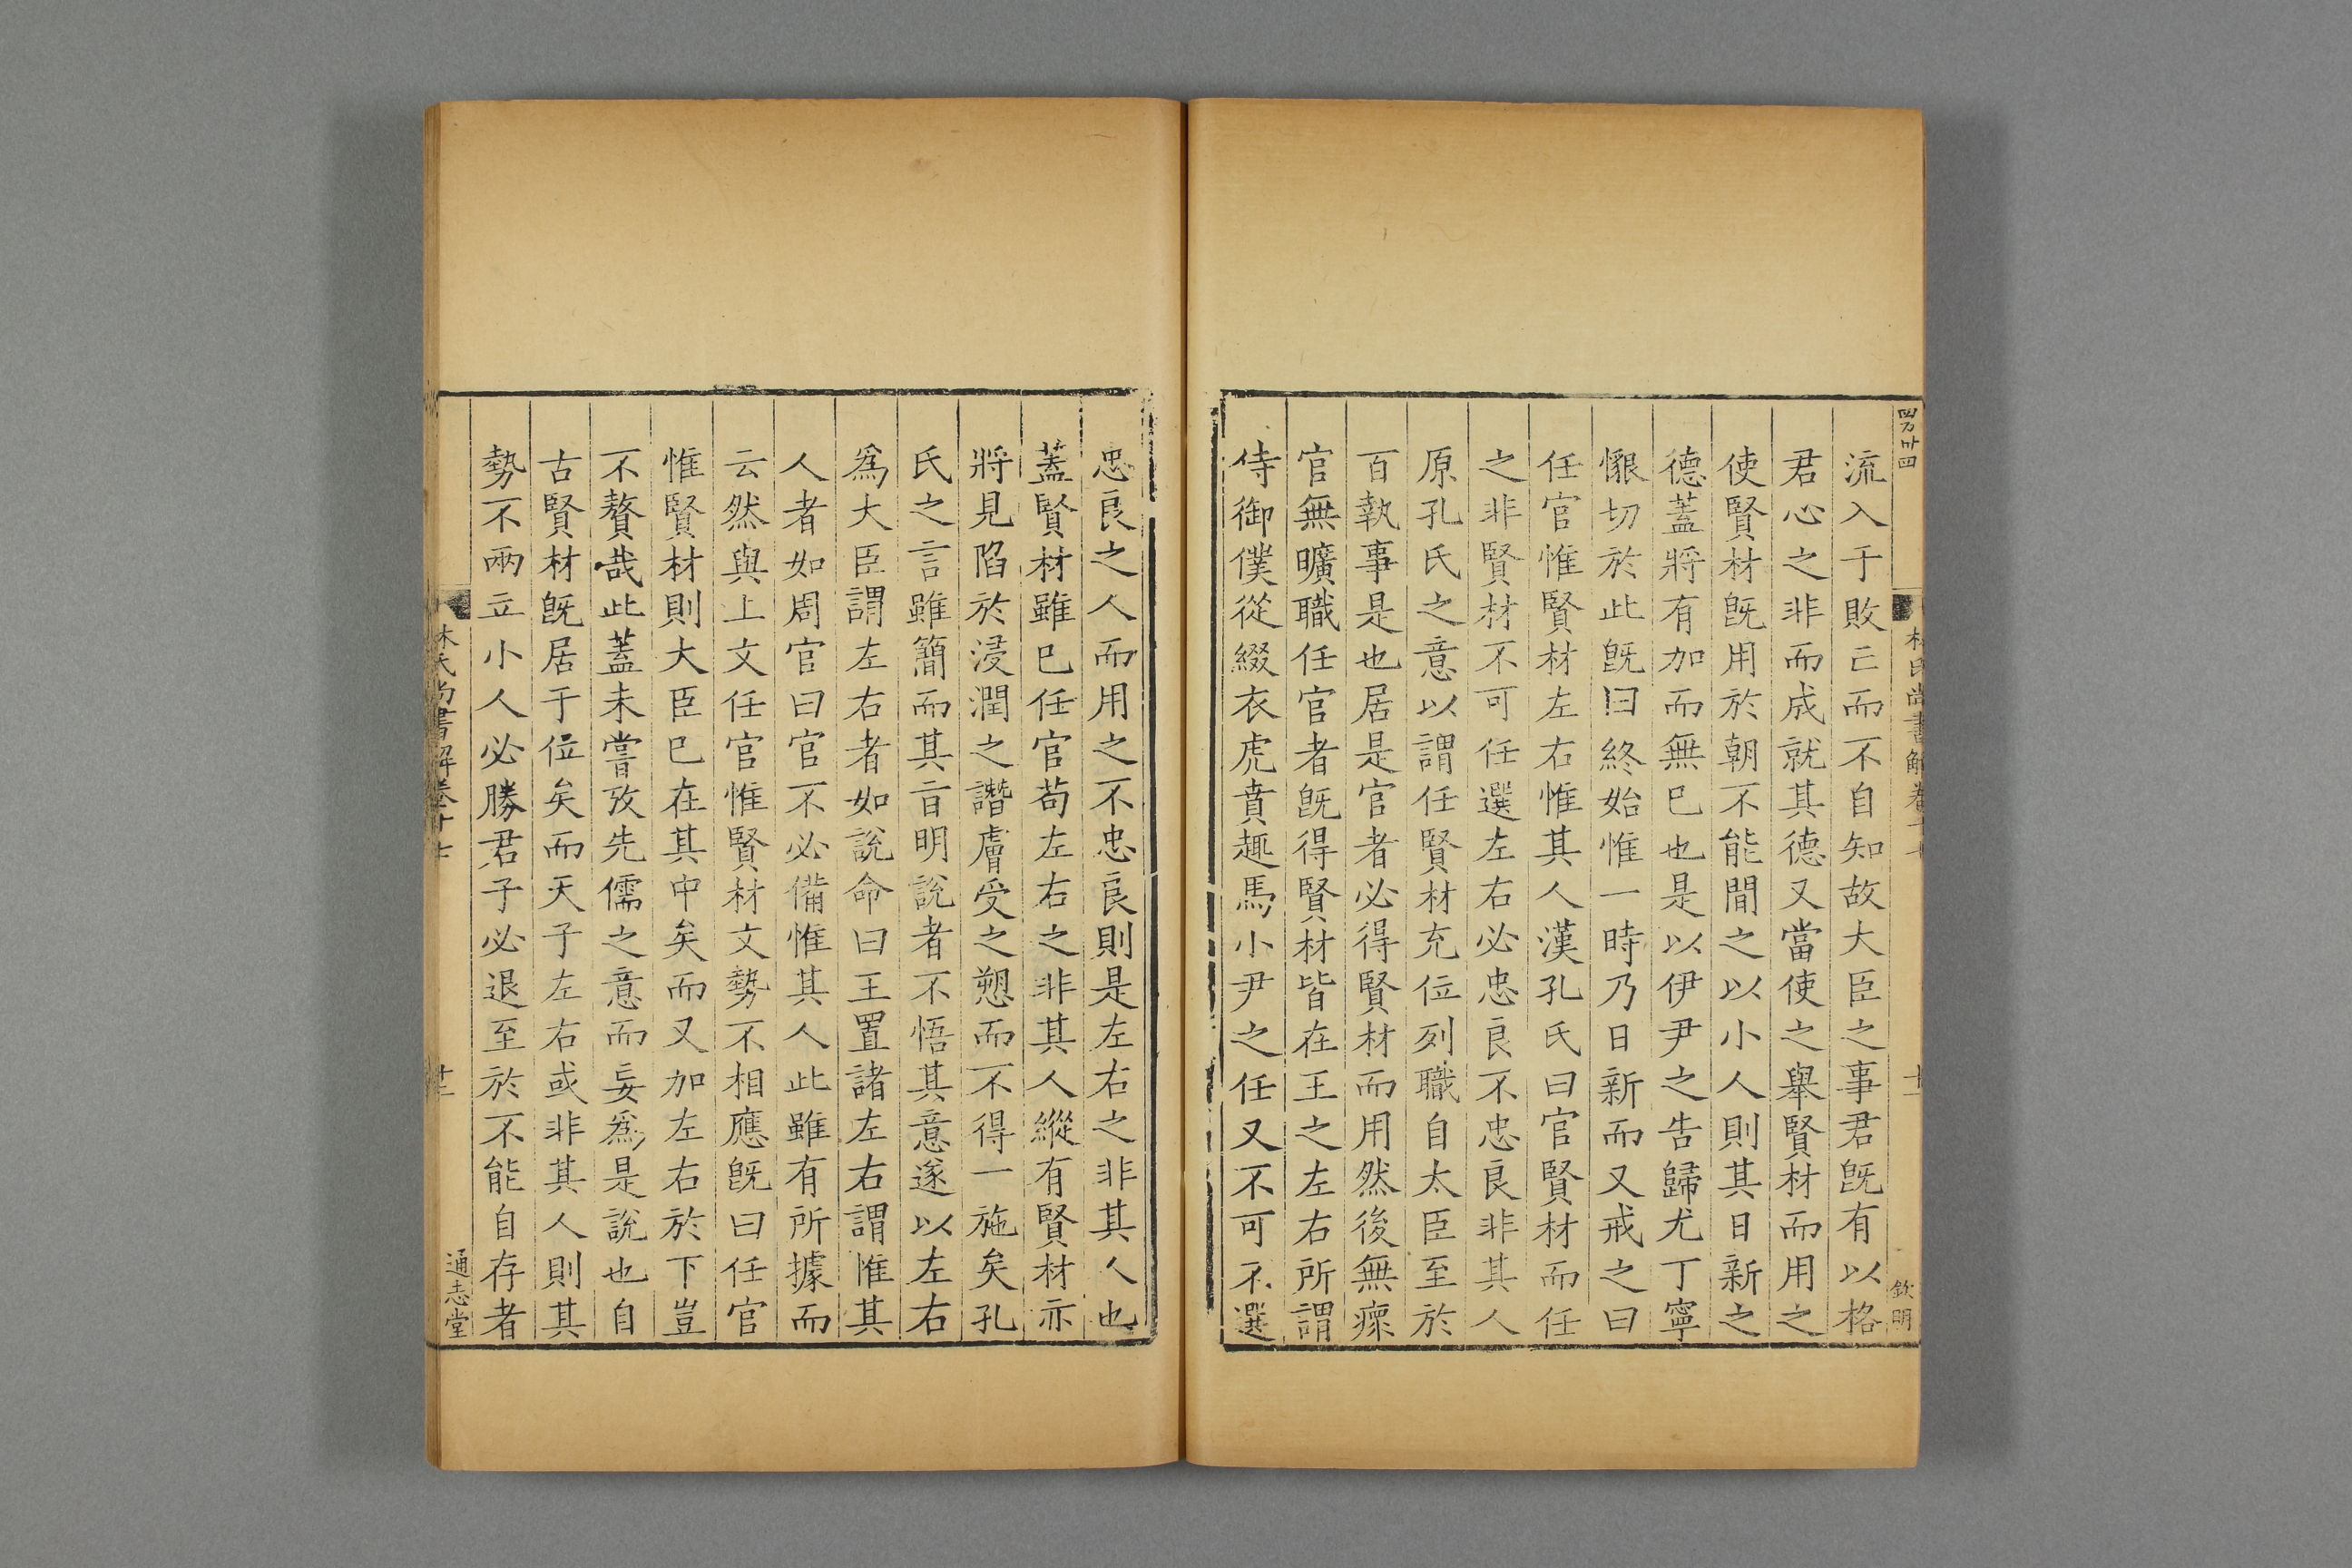 流入于敗亡而不自知故大臣之事君旣有以格
君心之非而成就其德又當使之舉賢材而用之
使賢材旣用於朝不能間之以小人則其日新之
德蓋將有加而無已也是以伊尹之告歸尤丁寧
懇切於此旣曰終始惟一時乃日新而又戒之曰
任官惟賢材左右惟其人漢孔氏曰官賢材而任
之非賢材不可任選左右必忠良不忠良非其人
原孔氏之意以謂任賢材充位列職自太臣至於
百執事是也居是官者必得賢材而用然後無瘝
官無曠職任官者旣得賢材皆在王之左右所謂
侍御僕從綴衣虎賁趣馬小尹之任又不可不選
欽明
忠良之人而用之不忠良則是左右之非其人也
蓋賢材雖已任官苟左右之非其人縱有賢材亦
將見陷於浸潤之譖膚受之愬而不得一施矣孔
氏之言雖簡而其旨明說者不悟其意遂以左右
爲大臣謂左右者如說命曰王置諸左右謂惟其
人者如周官曰官不必備惟其人此雖有所據而
云然與上文任官惟賢材文勢不相應旣曰任官
惟賢材則大臣已在其中矣而又加左右於下豈
不贅哉此蓋未嘗攷先儒之意而妄爲是說也自
古賢材旣居于位矣而天子左右或非其人則其
勢不兩立小人必勝君子必退至於不能自存者
林氏尚書解卷十七
通志堂